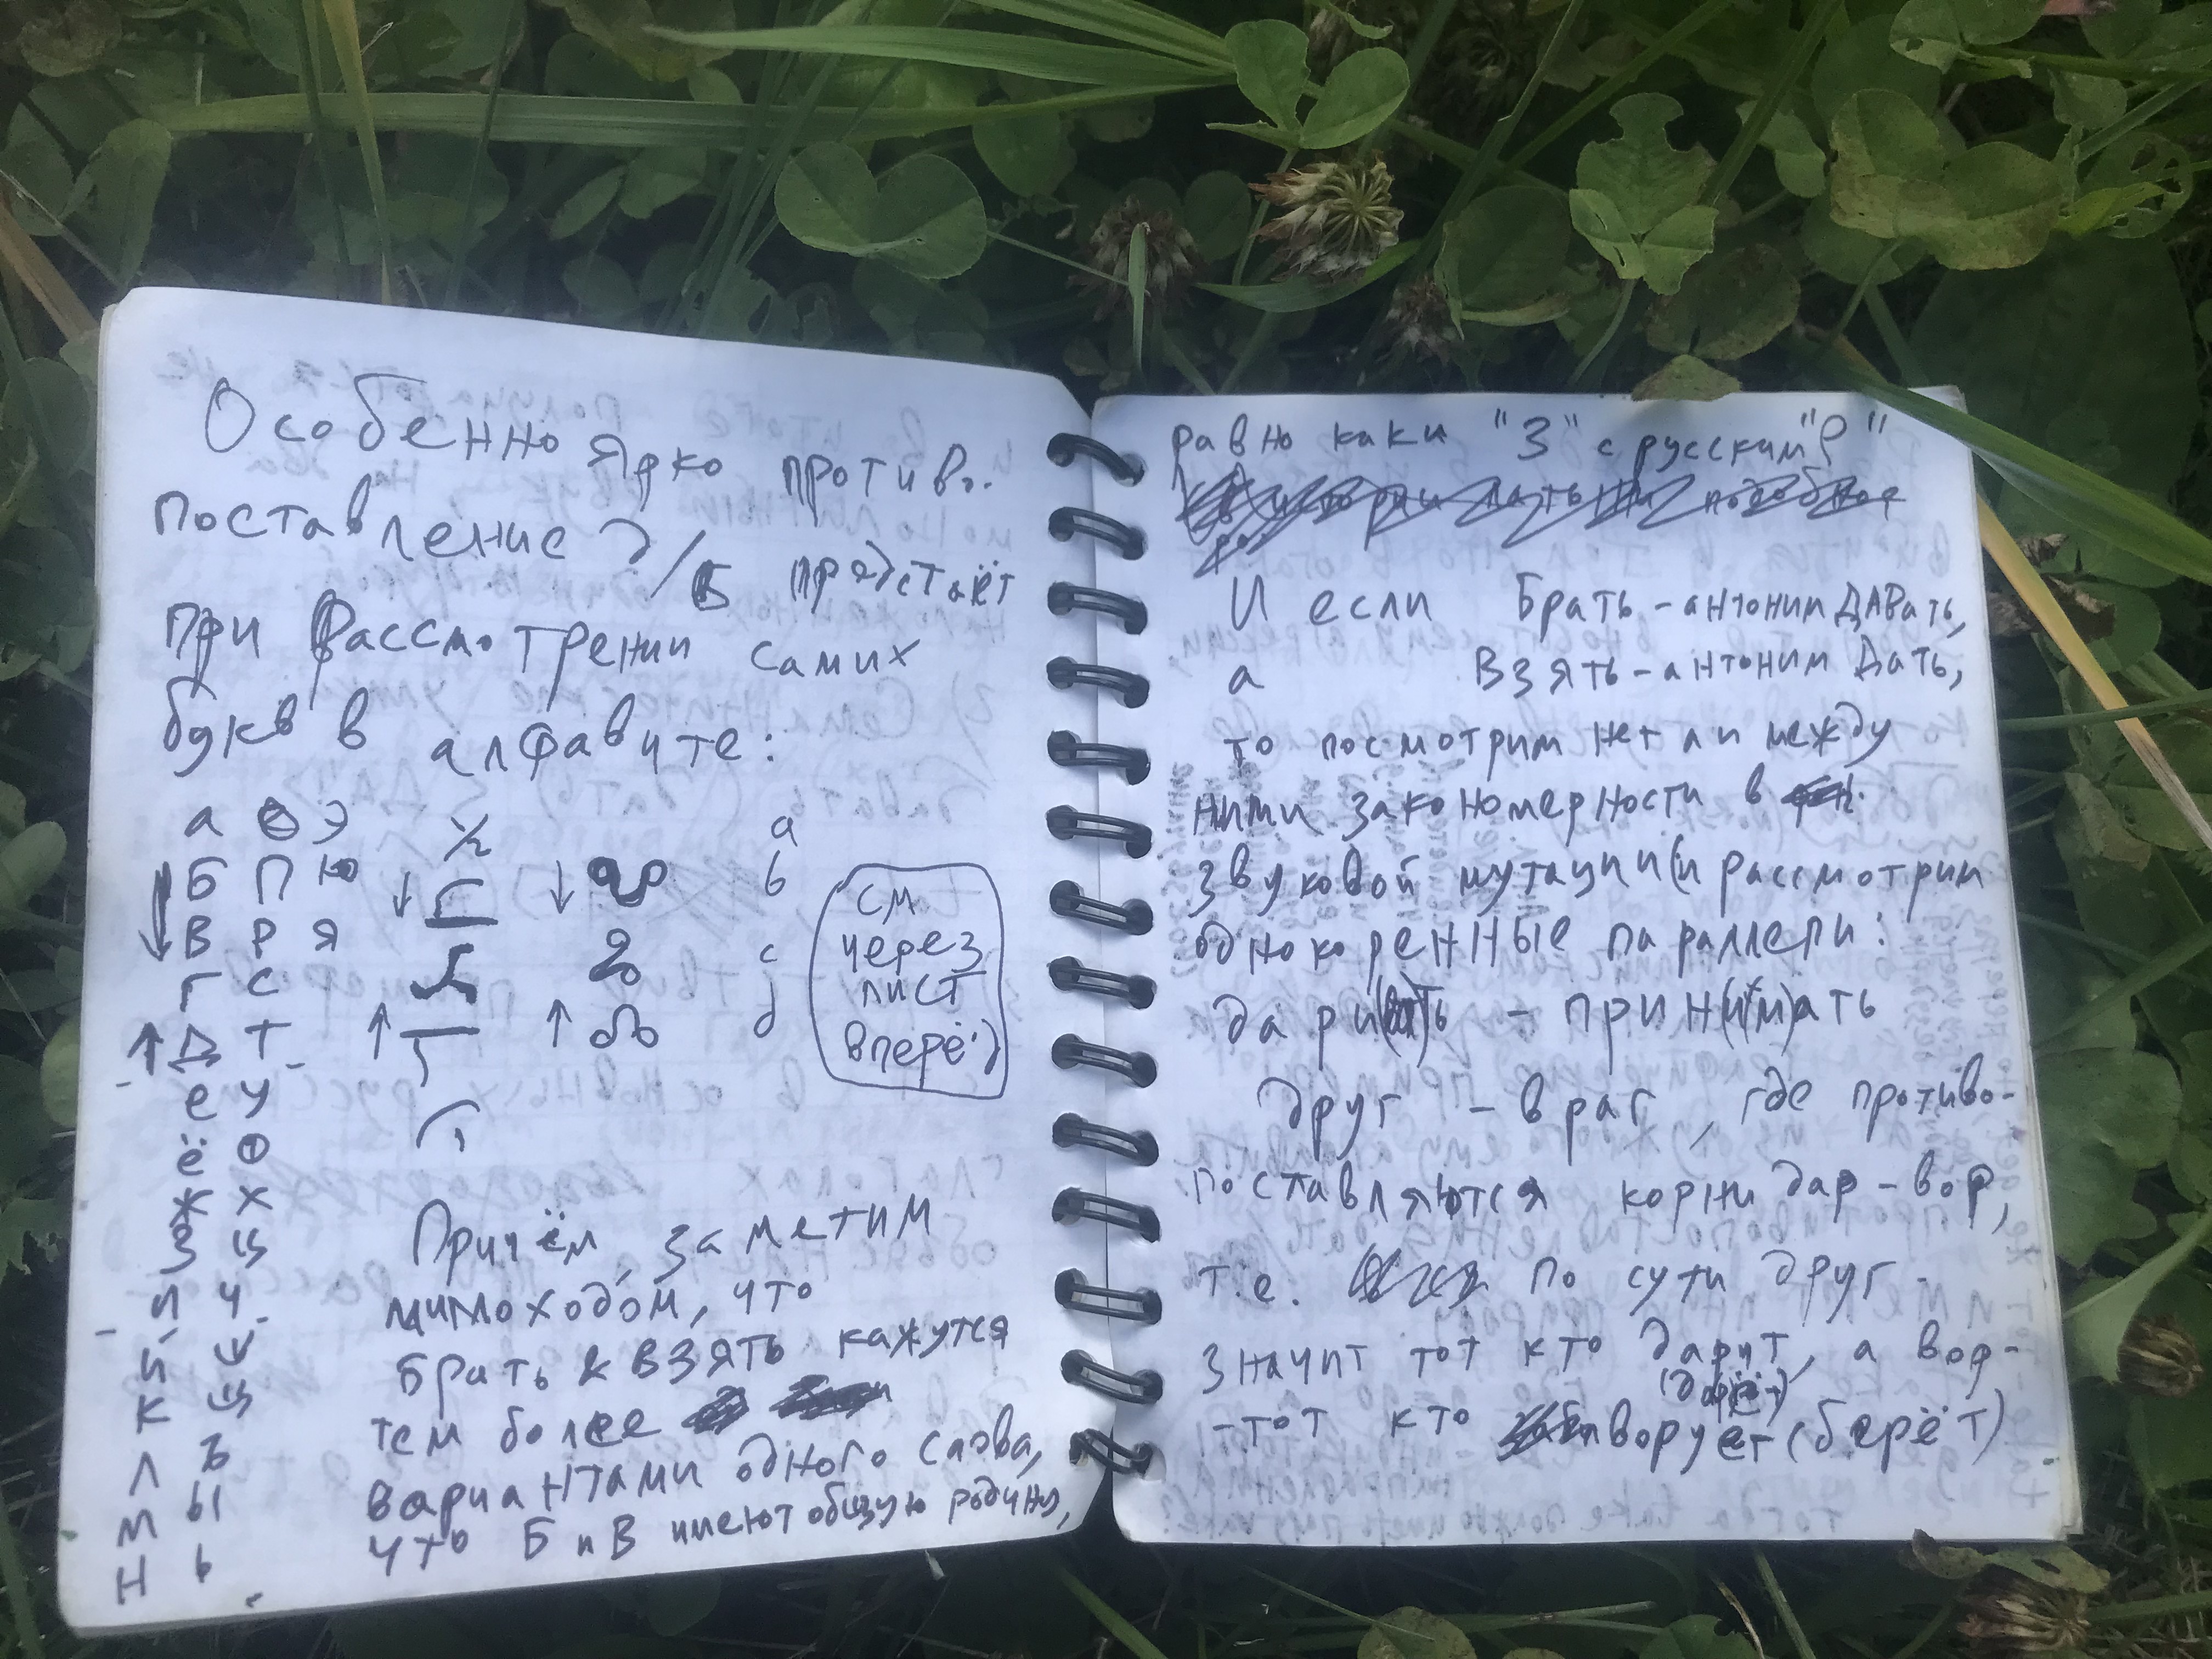 Особенно ярко противо-
поставление предстаёт
при рассмотрении самих
букв в алфавите:
а о э ½ a
Б П ю ↓ ↓ b
↓ В Р я
Г С c
↑ Д Т ↑ ↑ d
е у
ё ф
Ж х
З ц
и ч
й ш
к щ
л ъ
м ы
н ь
(см.
через
лист
вперёд)
Причём заметим
мимоходом, что
брать и взять кажутся
тем более
вариантами одного слова,
что Б и В имеют общую родину,
равно как и "З" с русским "р"
И если брать - антоним давать,
а взять - антоним дать,
то посмотрим нет ли между
ними закономерности в
звуковой мутации (и рассмотрим
однокоренные параллели:
дари(ва)ть - прин(им)ать
Друг - враг, где противо-
поставляются корни дар - вор,
т.е. по сути друг
значит тот кто дарит, а вор -
тот кто ворует (берёт)